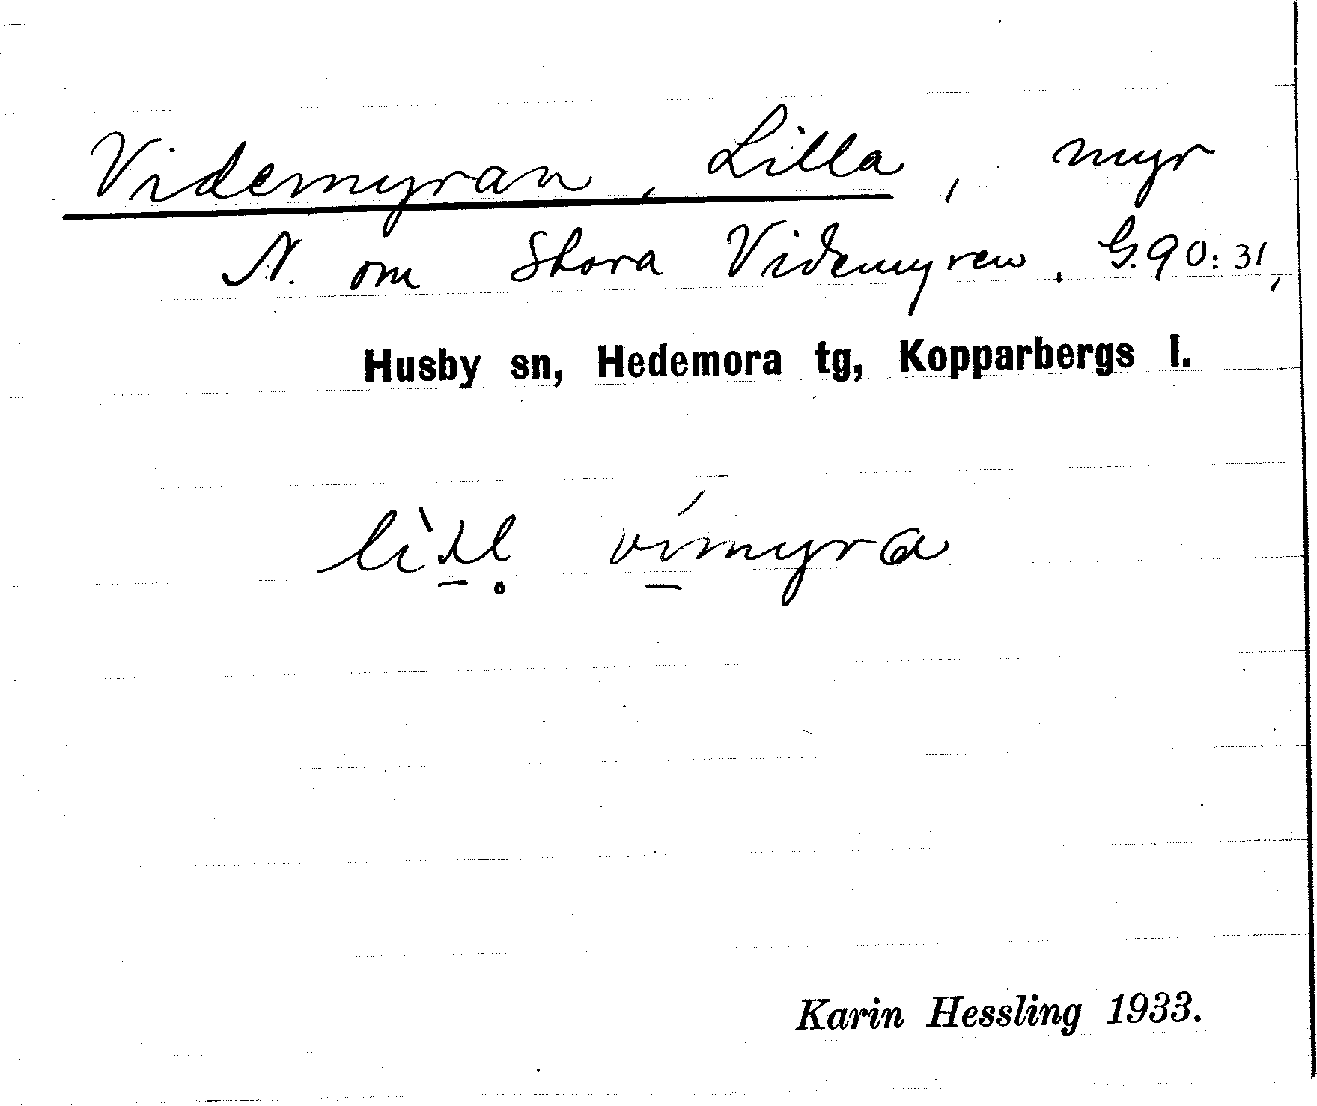 Videmyran, Lilla, myr
N. om Stora Videmyren. G.90:31,
Husby sn, Hedemora tg, Kopparbergs l.
vímyra
Karin Hessling 1933.